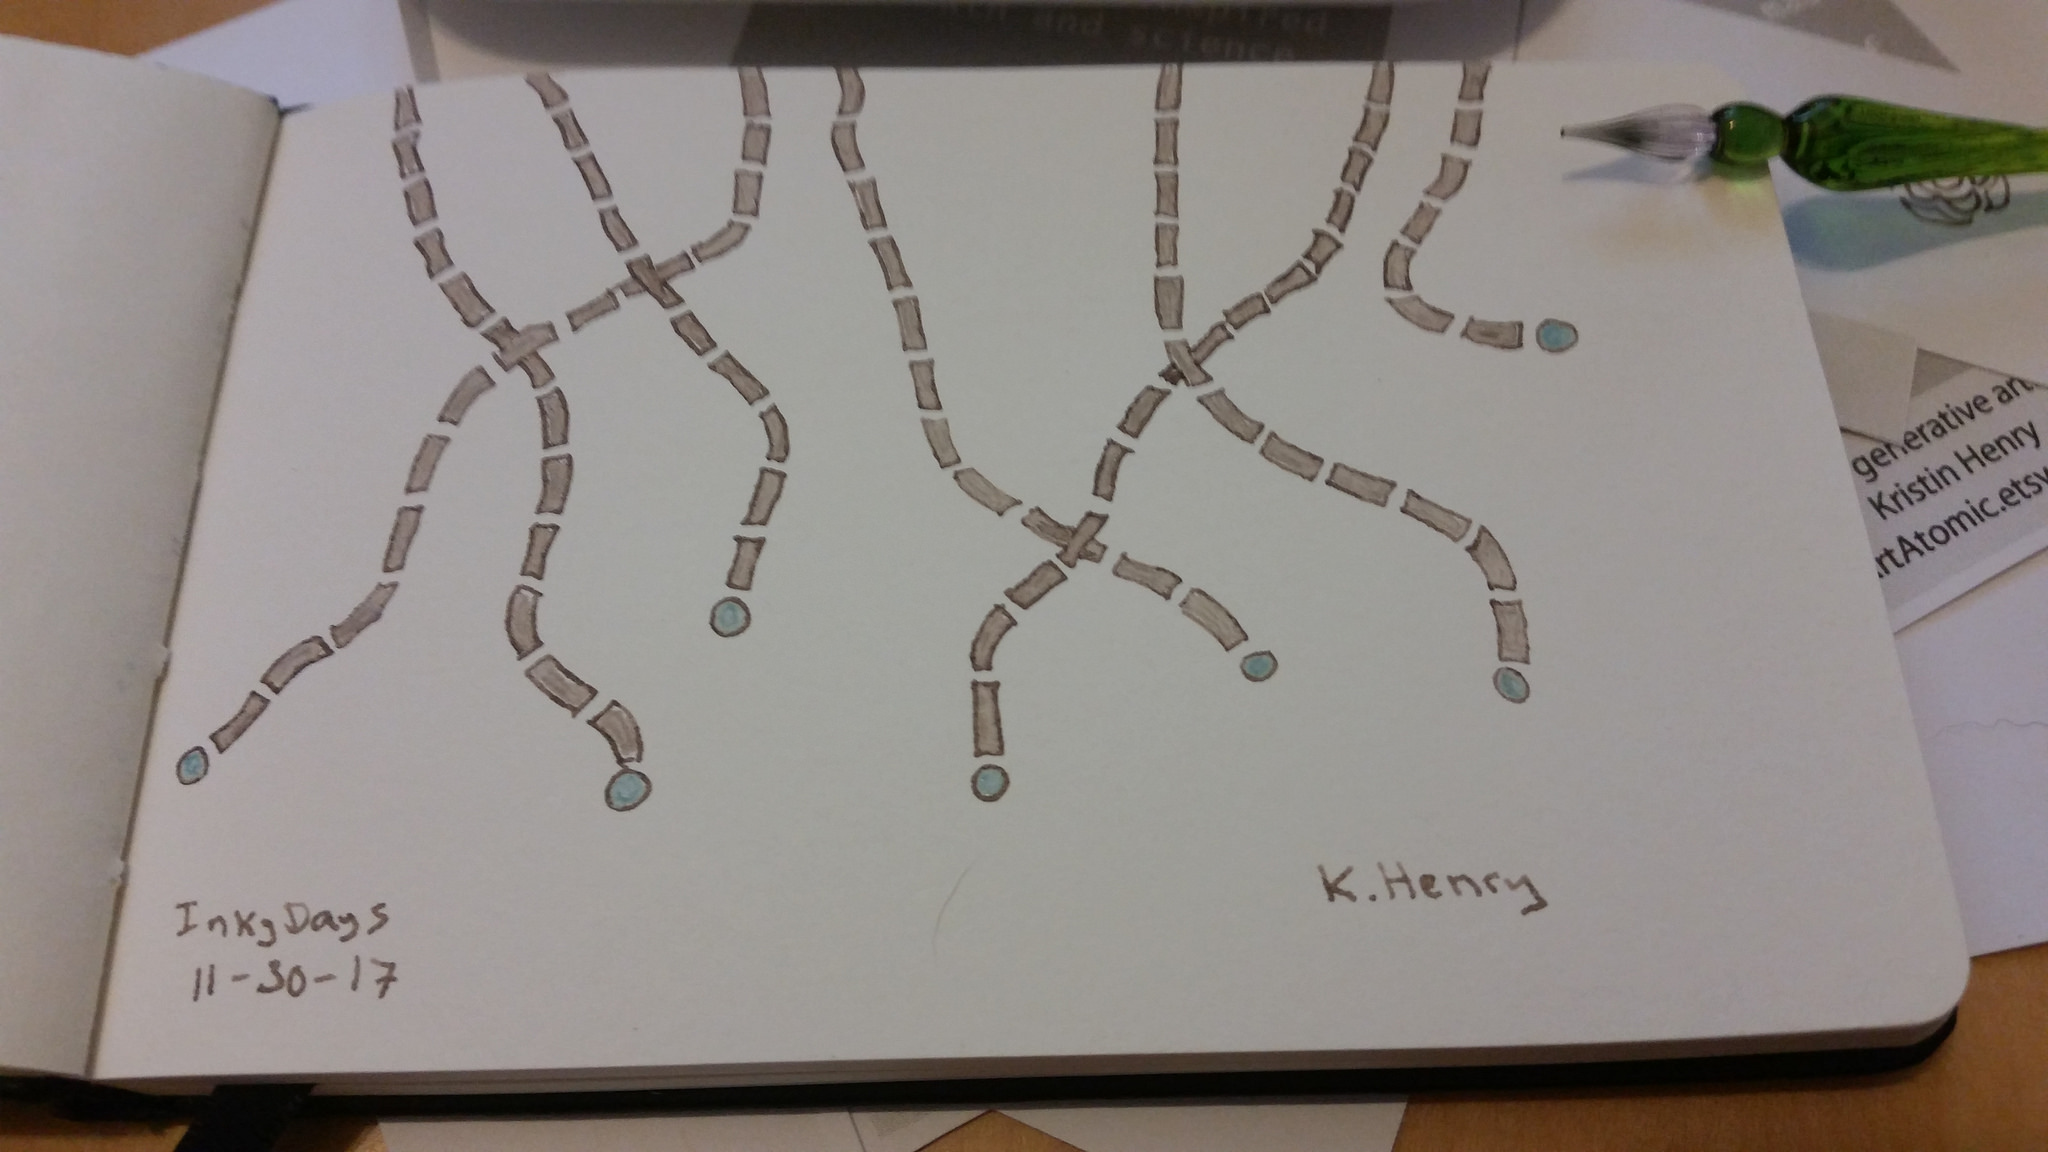 and science
generative art
Kristin Henry
ArtAtomic.etsy
K.Henry
InkyDays
11-30-17